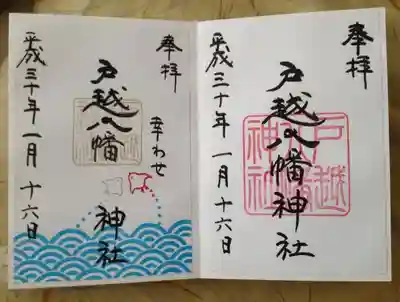 奉拝
戸越八幡神社
平成三十年一月十六日
戸越八幡神社
奉拝
戸越八幡神社
幸わせ
平成三十年一月十六日